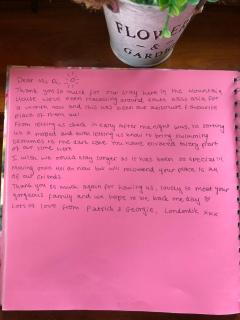 FLOWERS
&
GARDEN
Dear Ms Di,
Thank you so much for our stay here in the mountain
house. We've been travelling around south east asia for
a month now and this has been our absolute favourite
place of them all!
From letting us check in early after the night bus, to sorting
us a moped and even letting us know to bring swimming
costumes to the dark cave. You have elevated every part
of our time here.
I wish we could stay longer as it has been so special!!
Moving onto Hoi An now but will recommend your place to all
of our friends.
Thank you so much again for having us, lovely to meet your
gorgeous family and we hope to be back one day
Lots of love from, Patrick & Georgie, London UK xxx